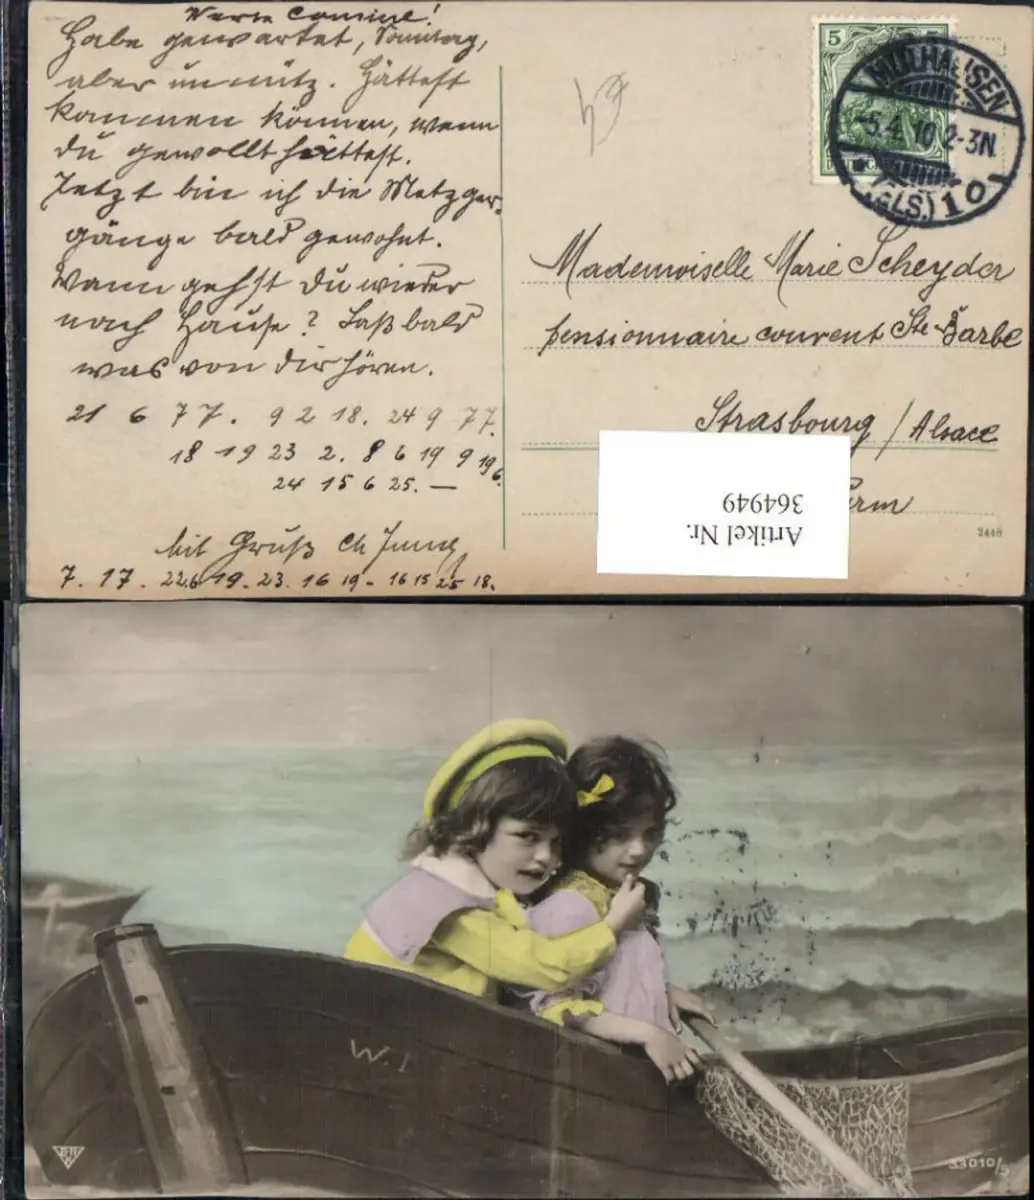 Werte Cousine!
Habe gewartet, Sonntag,
aber unnütz. Hättest
kommen können, wenn
du gewollt hättest.
Jetzt bin ich die Metzger-
gänge bald gewohnt.
Wann gehst Du wieder
nach Hause? Laß bald
was von dir hören.
21 6 7 7. 9 2 18. 24 9 7 7.
18 19 23 2. 8 6 19 9 19 6.
24 15 6 25. —
Mit Gruß Ch Jung
7. 17. 22.6 19. 23. 16 19 - 16 15 25 18.
5
MÜLHAUSEN
-5.4.10 2-3N.
(ELS.) 10
Mademoiselle Marie Scheyder
pensionnaire couvent Ste Barbe
Strasbourg / Alsace
Artikel Nr.
364949
2448
W. I
53010/5